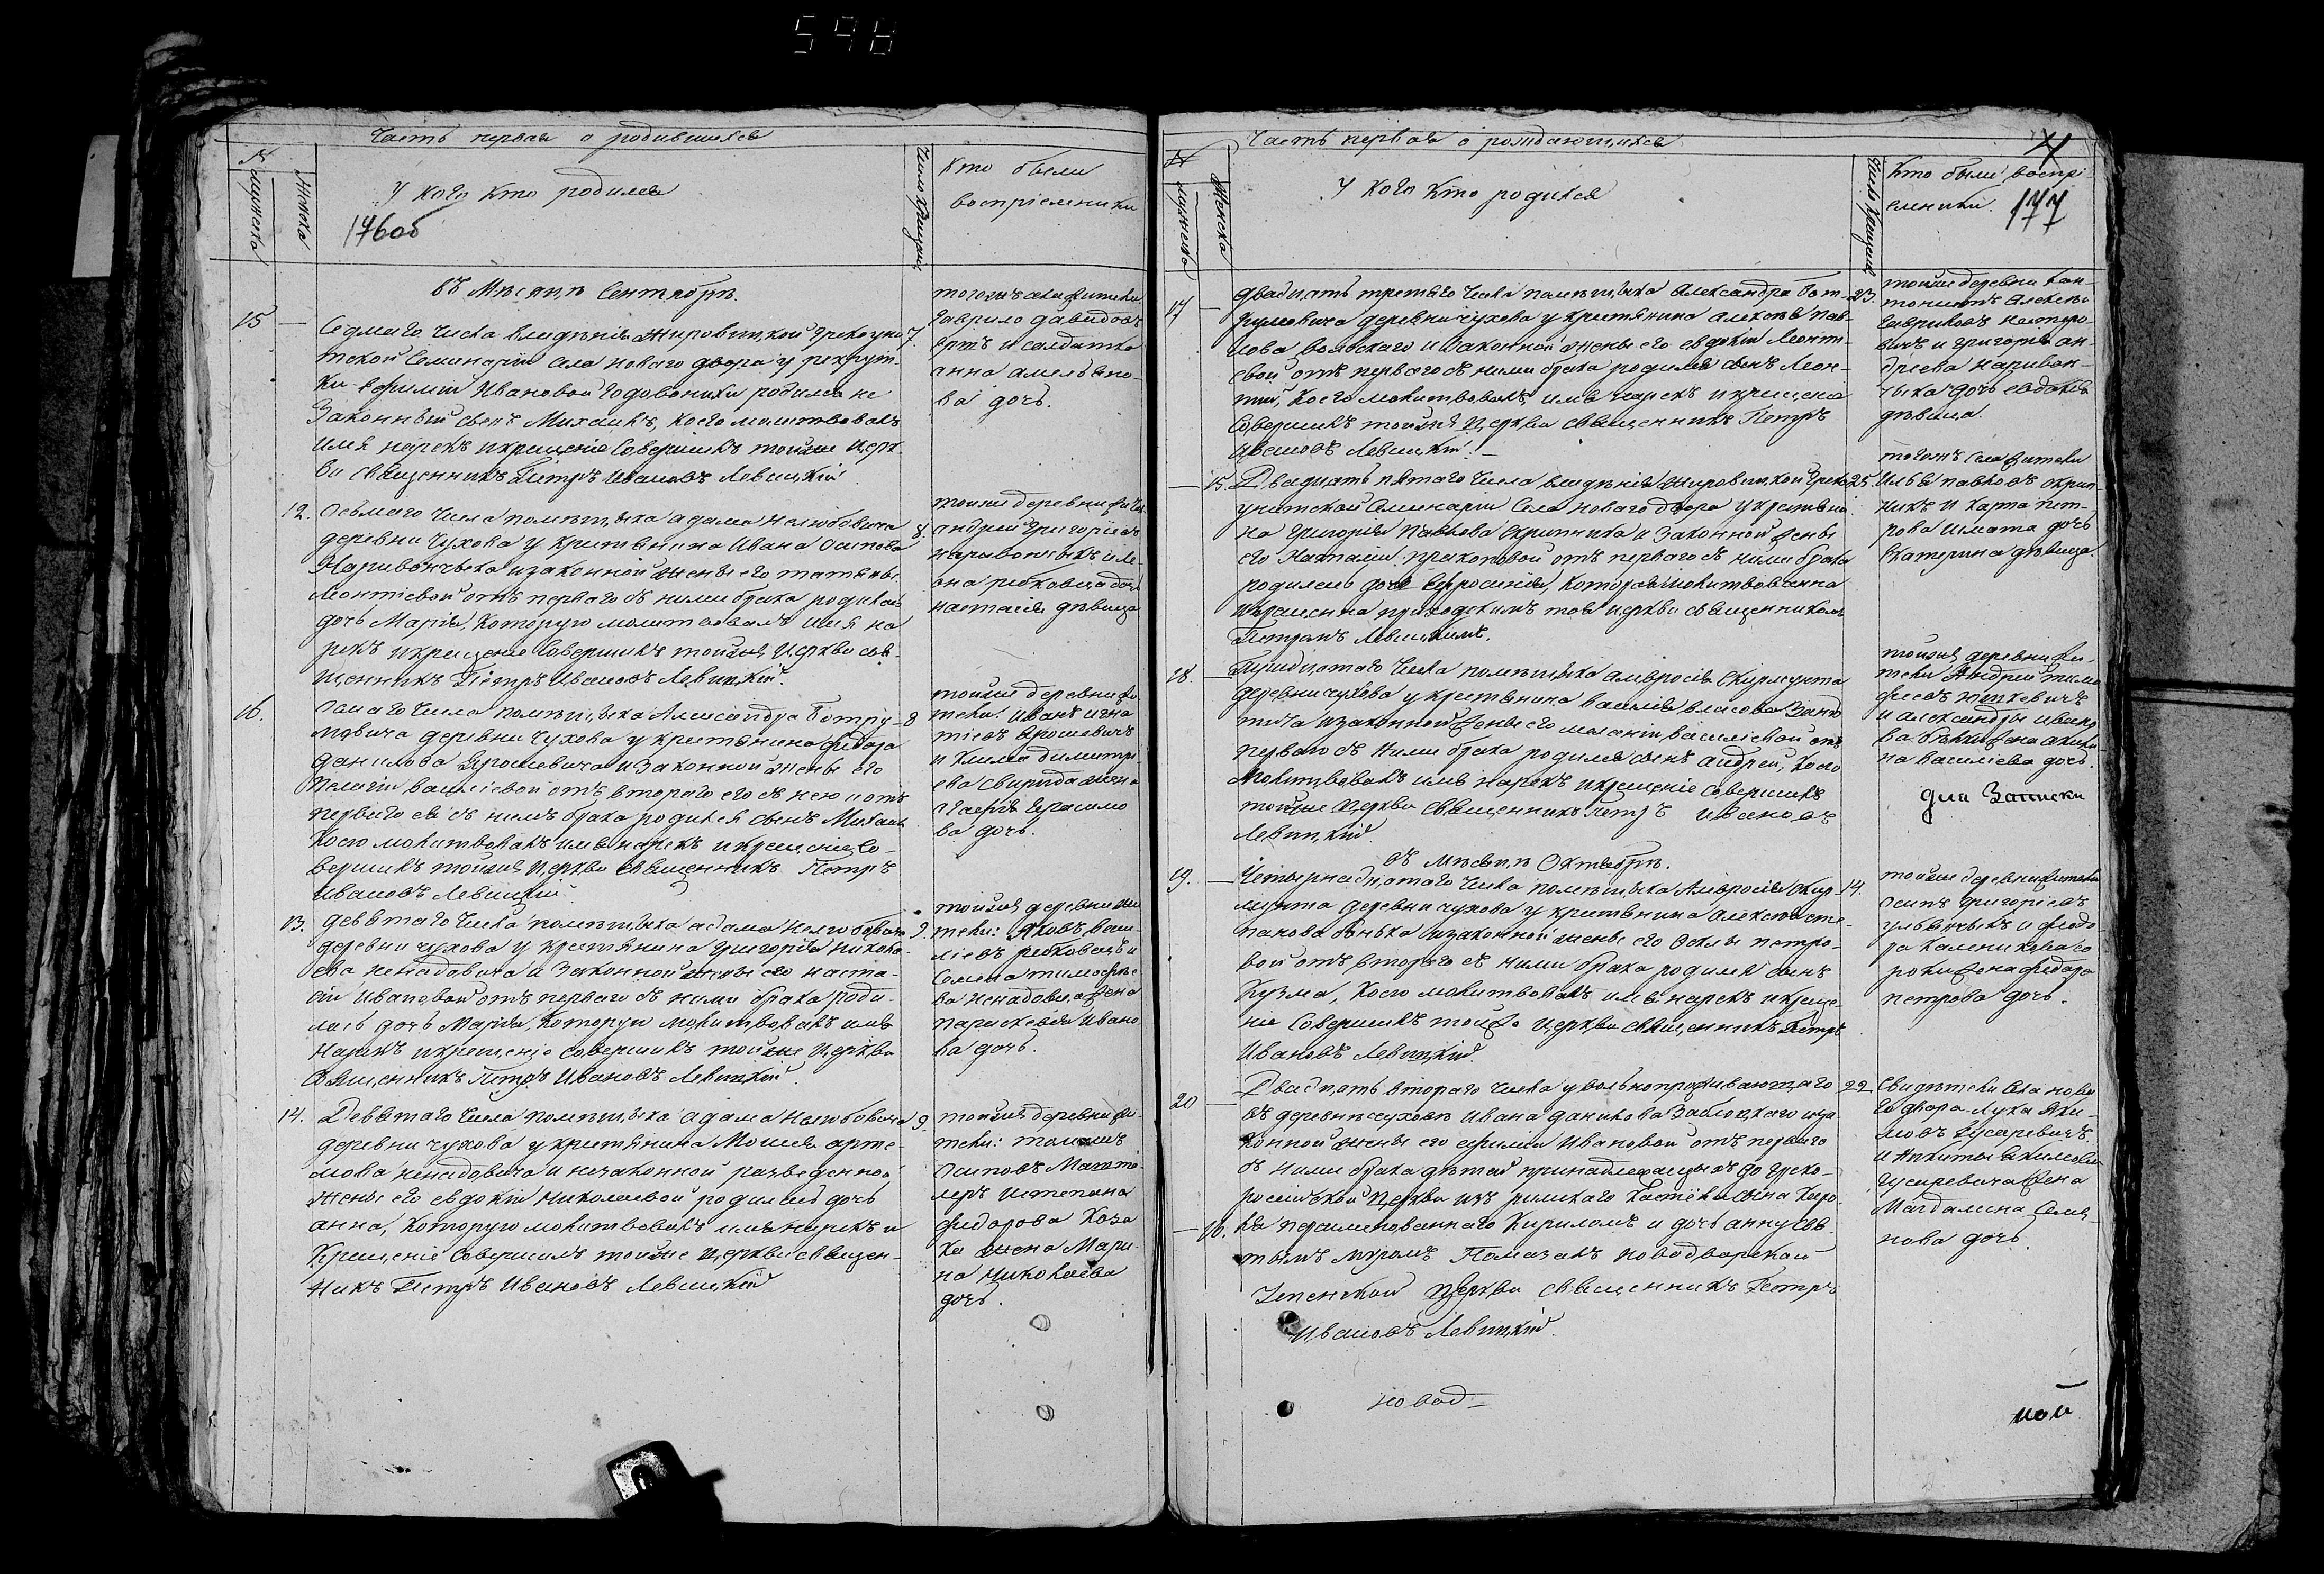 598
Часть первая о родившихся
№
Мужеска
Женска
У кого кто родился
176об
Число крещения
Кто были
воспріемники
въ Мѣсяцѣ Сентябрѣ.
15 —
Седмаго числа владѣнія Жировицкой Греко уни-
7.
тской Семинаріи села новаго двора у рекрут-
ки Ефиміи Ивановой родился не
законный сынъ Михаилъ, коего молитвовалъ
имя нарекъ и крещеніе совершилъ тойже церк-
ви священникъ Петръ Ивановъ Левицкій
тогожъ села жители
Гаврило Давидовъ
и солдатка
анна амельяно-
ва дочь.
12. Осьмаго числа помѣщика адама Нелюбовича
8.
деревни Чухова у крестьянина Ивана Осипова
Наривончыка и законной жены его татьяны
Леонтіевой отъ перваго съ ними брака родилась
дочь Марія, которую молитвовалъ имя на
рекъ и крещеніе совершилъ тойже церкви свя-
щенникъ Петръ Ивановъ Левицкій.
тойже деревни жители
андрей Григоріевъ
наривончыкъ и Ле-
она рыбковца дочь
настасія дѣвица
16. Осмаго числа помѣщика Александра Ботръ-
8
мовича деревни Чухова у крестьянина федора
данилова Ярошевича и законной жены его
Пелагіи василіевой отъ втораго его съ нею и отъ
перваго ея съ нимъ брака родился сынъ Михаилъ
коего молитвовалъ имя нарекъ и крещеніе со-
вершилъ тойже церкви священникъ Петръ
Ивановъ Левицкій
тойже деревни жи-
тели: Иванъ игна
тіевъ ярошевичъ
и Клима димитрі-
ева свирида жена
агафія Герасимо
ва дочь.
13. девятаго числа помѣщика адама Нелюбовича
9.
деревни Чухова у крестьянина григорія никола-
ева ненадовича и законной жены его наста-
сіи Ивановой отъ перваго съ ними брака роди-
лась дочь Марія, которую молитвовалъ имя
нарекъ и крещеніе совершилъ тойже церкви
Священникъ Петръ Ивановъ Левицкій.
тойже деревни жи
тели: Яковъ васи-
ліевъ рыбковецъ и
Семена тимофѣе
ва ненадовца жена
параскевія Ивано
ва дочь.
14. Девятаго числа помѣщика адама Нелюбовича
9.
деревни чухова у крестьянина Моисея арте-
мова ненадовича и незаконной разведенной
жены его евдокіи николаевой родилась дочь
анна, которую молитвовалъ имя нарекъ и
крещеніе совершилъ тойже церкви священ-
никъ Петръ Ивановъ Левицкій
тойже деревни жи-
тели: томашъ
Осиповъ
и степана
федорова Коза
ка жена Мари-
на николаева
дочь.
Часть первая о рождающихся
№
Мужеска
Женска
У кого кто родился
Число крещенія
Кто были воспрі-
емники.
177
17 — двадцать третьяго числа помѣщика Александра Бот-
23.
румовича деревни чухова у крестьянина алексѣя пав-
лова вольскаго и законной жены его евдокіи Леонт-
евой отъ перваго съ ними брака родился сынъ Леон-
тій, коего молитвовалъ, имя нарекъ и крещеніе
совершилъ тойже церкви священникъ Петръ
Ивановъ Левицкій. —
тойже деревни кан-
тонистъ алексѣй
Гавриловъ нестеро-
вичъ и григорія ан-
дреева наривон-
чыка дочь евдокія
дѣвица.
— 15. Двадцать пятаго числа владѣнія Жировицкой Греко
25.
унитской Семинаріи Села новаго двора у крестьяни-
на Григорія Павлова скрипника и законной жены
его Наталіи прокоповой отъ перваго съ ними брака
родилась дочь Ефросинія, которая молитвованна
и крещенна приходскимъ тоя церкви священникомъ
Петромъ Левицкимъ.
тогожъ села жители
Илья павловъ скрип-
никъ и карпа пет-
рова дочь
екатерина дѣвица.
18. — Тридцатаго числа помѣщика амвросія скирмунта
деревни чухова у крестьянина василія власова
и законной жены его маланіи василіевой отъ
перваго съ ними брака родился сынъ андрей, коего
молитвовалъ имя нарекъ и крещеніе совершилъ
тойже церкви священникъ Петръ Ивановъ
Левицкій
тойже деревни жи-
тели Андрей тимо
феевъ
и александры ивано
ва жена акили-
на василіева дочь.
для Записки
въ мѣсяцѣ Октябрѣ.
19. — Четырнадцатаго числа помѣщика Амвросія скир-
14.
мунта деревни чухова у крестьянина алексѣя сте-
панова и законной жены его Феклы петро-
вой отъ втораго съ ними брака родился сынъ
Кузма, коего молитвовалъ имя нарекъ и креще-
ніе совершилъ тойже церкви священникъ Петръ
Ивановъ Левицкій.
тойже деревни жители
осипъ григоріевъ
ульянчыкъ и федо-
ра каленикова со
роки жена федора
петрова дочь.
20 — Двадцать втораго числа у вольнопроживающаго
22
въ деревнѣ чуховѣ Ивана данилова Заблоцкаго и за
конной жены его ефиміи Ивановой отъ перваго
съ ними брака дѣтей принадлежащыхъ до греко-
россійской церкви изъ римскаго костёла сына Каро-
— 16. ля переименованнаго Кириломъ и дочь анну свя
тымъ миромъ Помазалъ новодворской
Успенской церкви священникъ Петръ
Ивановъ Левицкій.
Свидѣтели села нова
го двора Лука Яки-
мовъ гусаревичъ
и Никиты якимова
гусаревича жена
Магдалина Семе-
нова дочь
новод —
ной